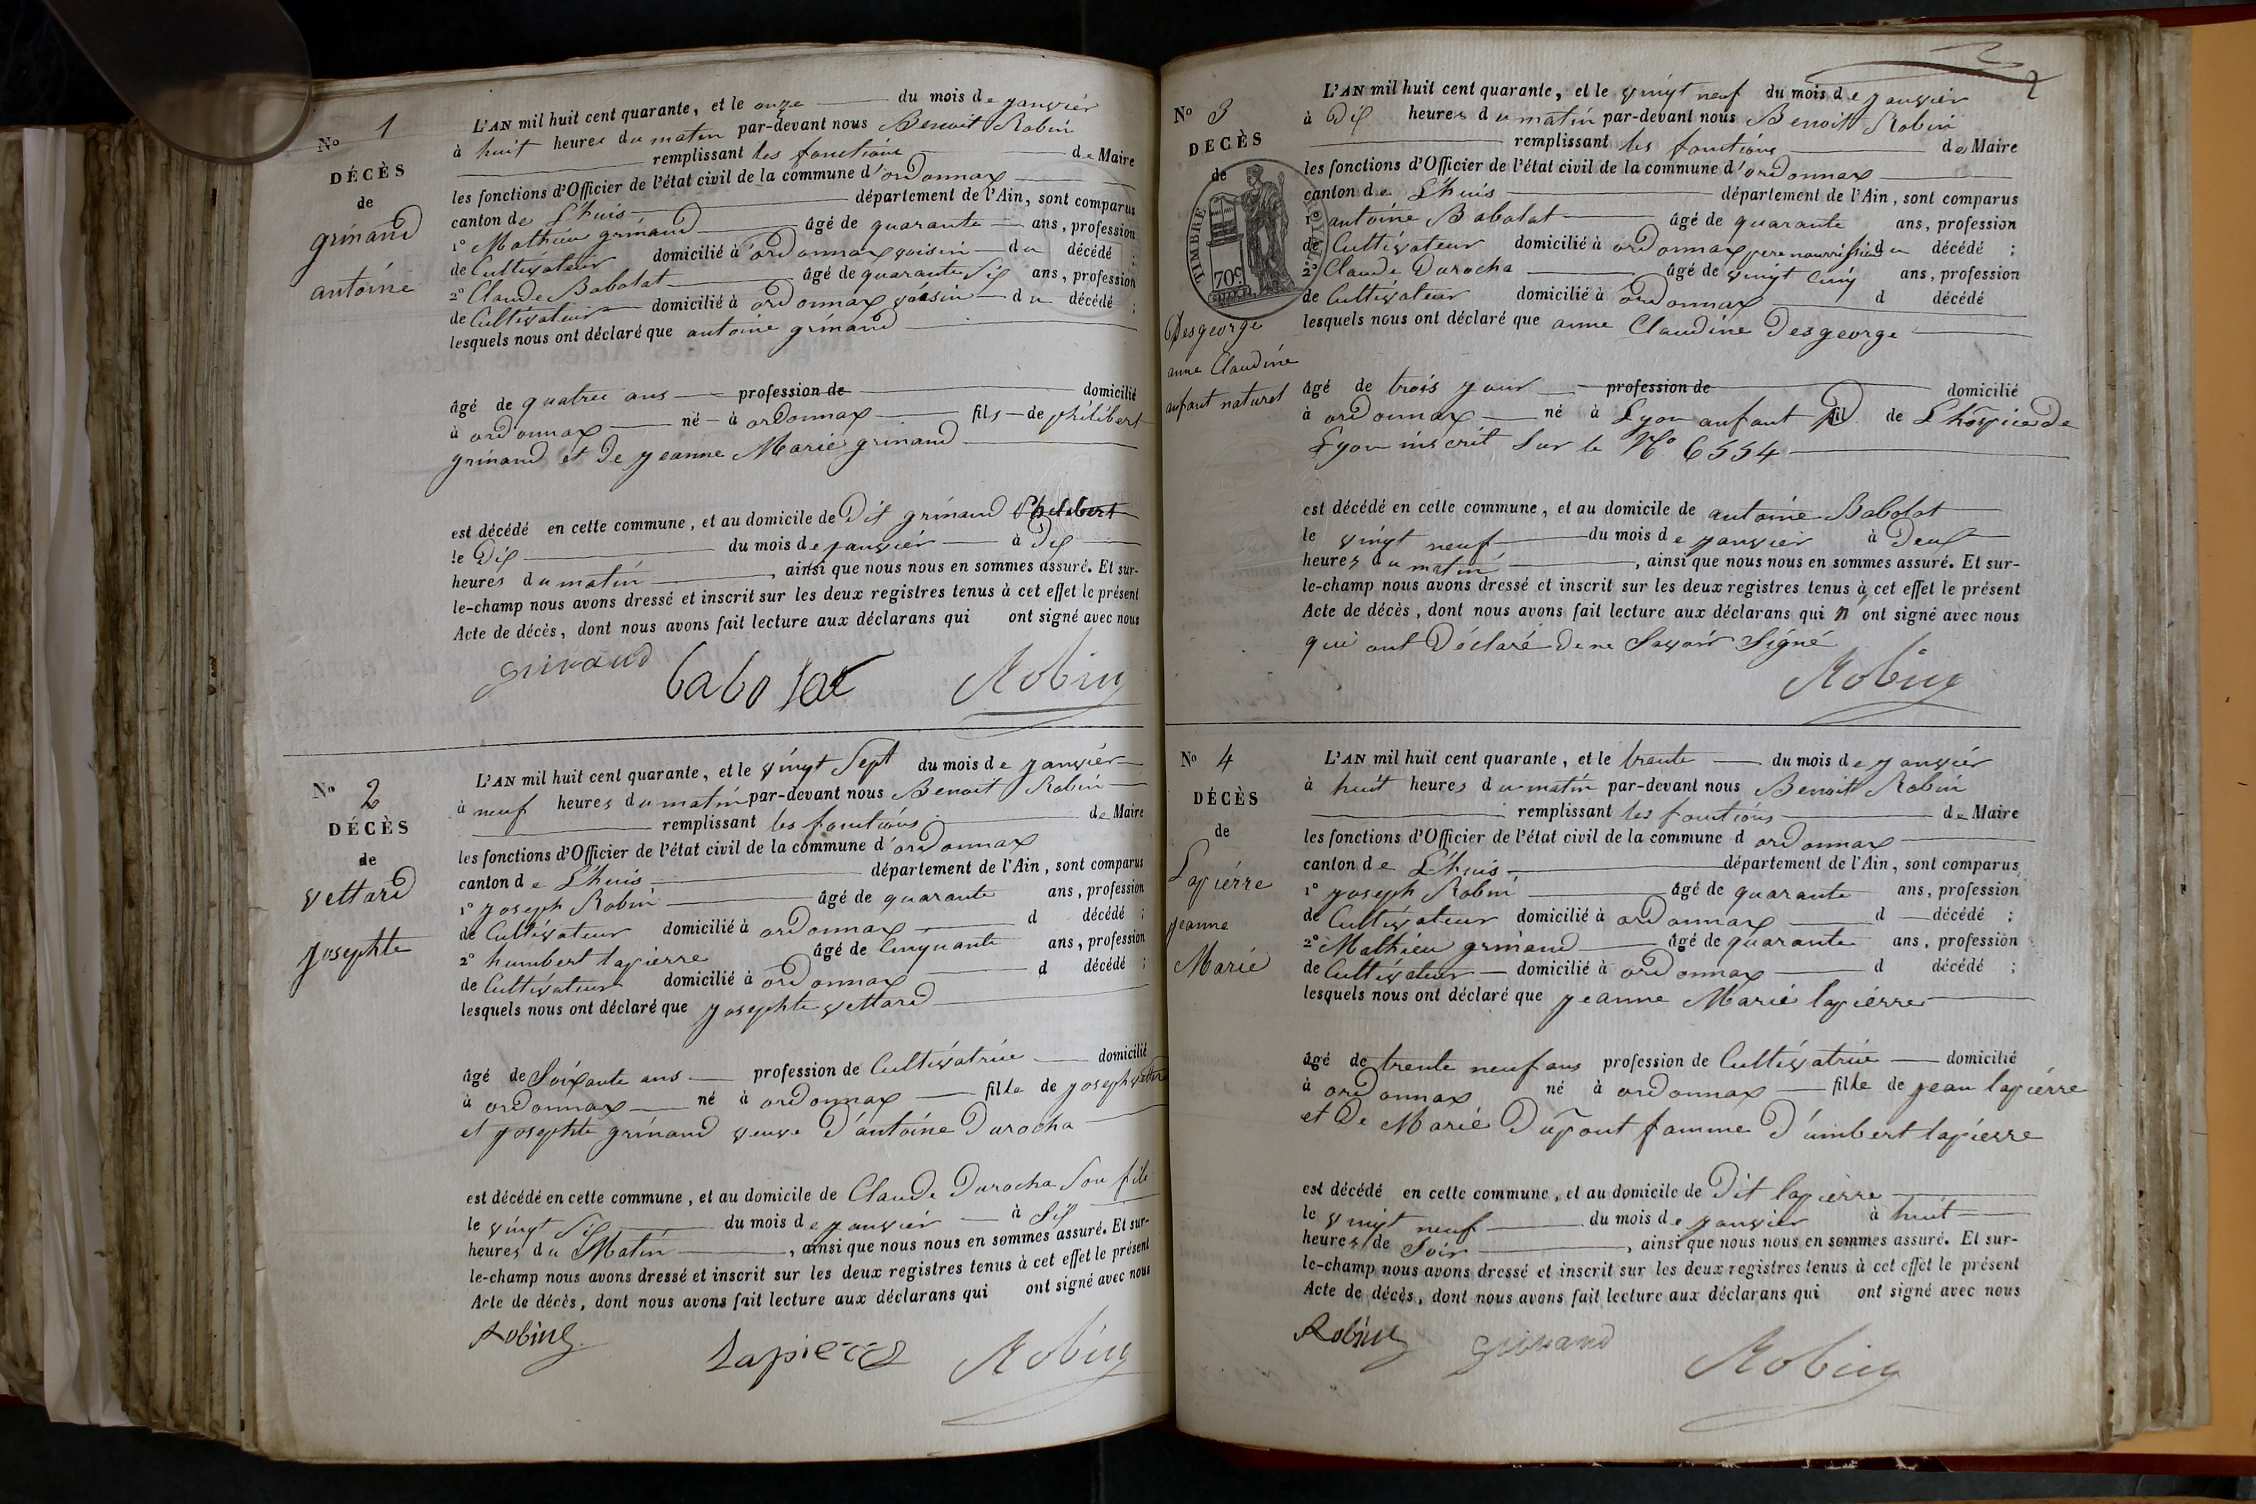 No 1
DÉCÈS
de
grinand
antoine
L'AN mil huit cent quarante, et le onze du mois de janvier
à huit heures du matin par-devant nous Benoit Robin
remplissant les fonctions de Maire
les fonctions d'Officier de l'état civil de la commune d'ordonnax
canton de L'huis département de l'Ain, sont comparus
1o Mathieu grinand âgé de quarante ans, profession
de Cultivateur domicilié à ordonnax voisin du décédé ;
2o Claude Babolat âgé de quarante Six ans, profession
de Cultivateur domicilié à ordonnax voisin du décédé ;
lesquels nous ont déclaré que antoine grinand
âgé de quatre ans profession de domicilié
à ordonnax né à ordonnax fils de philibert
grinand et De jeanne Marie grinand
est décédé en cette commune, et au domicile de Dit grinand Philibert
le Dix du mois de janvier à Dix
heures du matin, ainsi que nous nous en sommes assuré. Et sur-
le-champ nous avons dressé et inscrit sur les deux registres tenus à cet effet le présent
Acte de décès, dont nous avons fait lecture aux déclarans qui ont signé avec nous
grinand babolat Robin
No 2
DÉCÈS
de
vettard
josephte
L'AN mil huit cent quarante, et le vingt Sept du mois de janvier
à neuf heures du matin par-devant nous Benoit Robin
remplissant les fonctions de Maire
les fonctions d'Officier de l'état civil de la commune d'ordonnax
canton de L'huis département de l'Ain, sont comparus
1o joseph Robin âgé de quarante ans, profession
de Cultivateur domicilié à ordonnax d décédé ;
2o humbert lapierre âgé de Cinquante ans, profession
de Cultivateur domicilié à ordonnax d décédé ;
lesquels nous ont déclaré que josephte vettard
âgé de Soixante ans profession de Cultivatrice domicilié
à ordonnax né à ordonnax fille de joseph vettard
et josephte grinand veuve D'antoine Durocha
est décédé en cette commune, et au domicile de Claude Durocha Son fils
le vingt Six du mois de janvier à Six
heures du Matin, ainsi que nous nous en sommes assuré. Et sur-
le-champ nous avons dressé et inscrit sur les deux registres tenus à cet effet le présent
Acte de décès, dont nous avons fait lecture aux déclarans qui ont signé avec nous
Robin Lapierre Robin
2
No 3
DÉCÈS
de
TIMBRE ROYAL
70c
Desgeorge
anne Claudine
anfant naturel
L'AN mil huit cent quarante, et le vingt neuf du mois de janvier
à Dix heures du matin par-devant nous Benoit Robin
remplissant les fonctions de Maire
les fonctions d'Officier de l'état civil de la commune d'ordonnax
canton de L'huis département de l'Ain, sont comparus
1o antoine Babolat âgé de quarante ans, profession
de Cultivateur domicilié à ordonnax pere nourrissie du décédé ;
2o Claude Durocha âgé de vingt Cinq ans, profession
de Cultivateur domicilié à ordonnax d décédé
lesquels nous ont déclaré que anne Claudine Desgeorge
âgé de trois jour profession de domicilié
à ordonnax né à Lyon anfant fil de L'hospice De
Lyon inscrit Sur le No 6554
est décédé en cette commune, et au domicile de antoine Babolat
le vingt neuf du mois de janvier à Deux
heures du matin, ainsi que nous nous en sommes assuré. Et sur-
le-champ nous avons dressé et inscrit sur les deux registres tenus à cet effet le présent
Acte de décès, dont nous avons fait lecture aux déclarans qui n'ont signé avec nous
qui ont Déclaré De ne Savoir Signé
Robin
No 4
DÉCÈS
de
Lapiérre
jeanne
Marie
L'AN mil huit cent quarante, et le trente du mois de janvier
à huit heures du matin par-devant nous Benoit Robin
remplissant les fonctions de Maire
les fonctions d'Officier de l'état civil de la commune d ordonnax
canton de L'huis département de l'Ain, sont comparus
1o joseph Robin âgé de quarante ans, profession
de Cultivateur domicilié à ordonnax d décédé ;
2o Mathieu grinand âgé de quarante ans, profession
de Cultivateur domicilié à ordonnax d décédé ;
lesquels nous ont déclaré que jeanne Marie lapiérre
âgé de trente neuf ans profession de Cultivatrice domicilié
à ordonnax né à ordonnax fille de jean lapiérre
et De Marie Dupont famme D'umbert lapierre
est décédé en cette commune, et au domicile de Dit lapierre
le vingt neuf du mois de janvier à huit
heures de Soir, ainsi que nous nous en sommes assuré. Et sur-
le-champ nous avons dressé et inscrit sur les deux registres tenus à cet effet le présent
Acte de décès, dont nous avons fait lecture aux déclarans qui ont signé avec nous
Robin grinand Robin